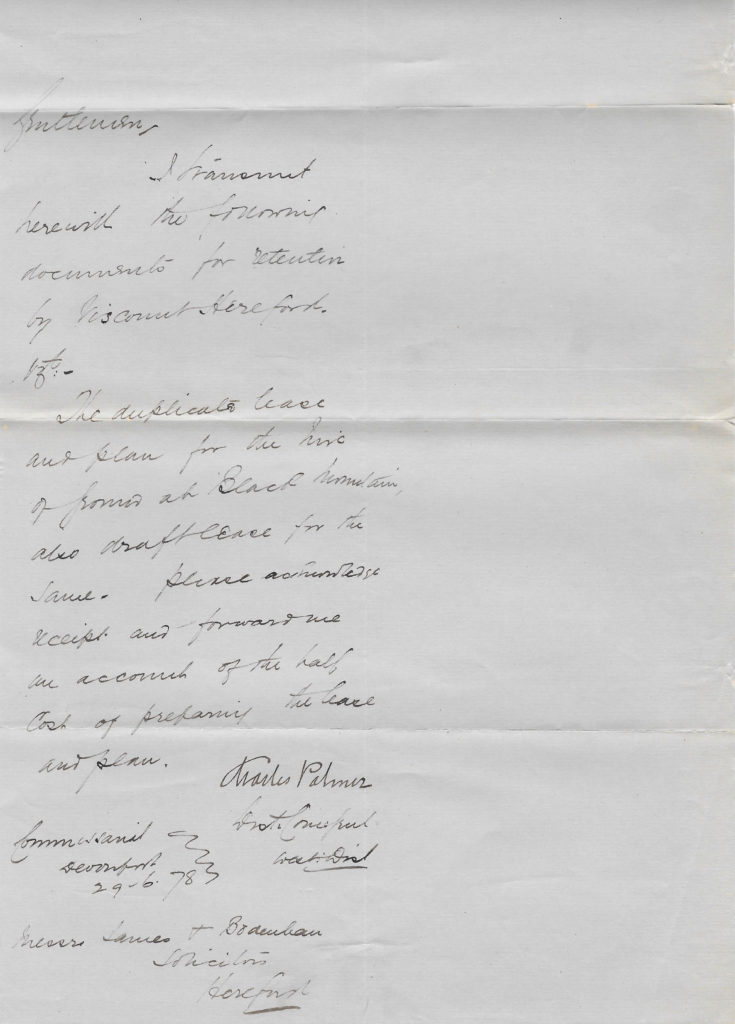 Gentlemen,
I transmit
herewith the following
documents for retention
by Viscount Hereford.
Vizt:-
The duplicate lease
and plan for the hire
of ground at Black Mountain,
also draft lease for the
same. Please acknowledge
receipt and forward me
an account of the half
cost of preparing the lease
and plan.
Charles Palmer
West: Dist
Commissariat
Devonport
29-6-78
Messrs James & Bodenham
Solicitors
Hereford